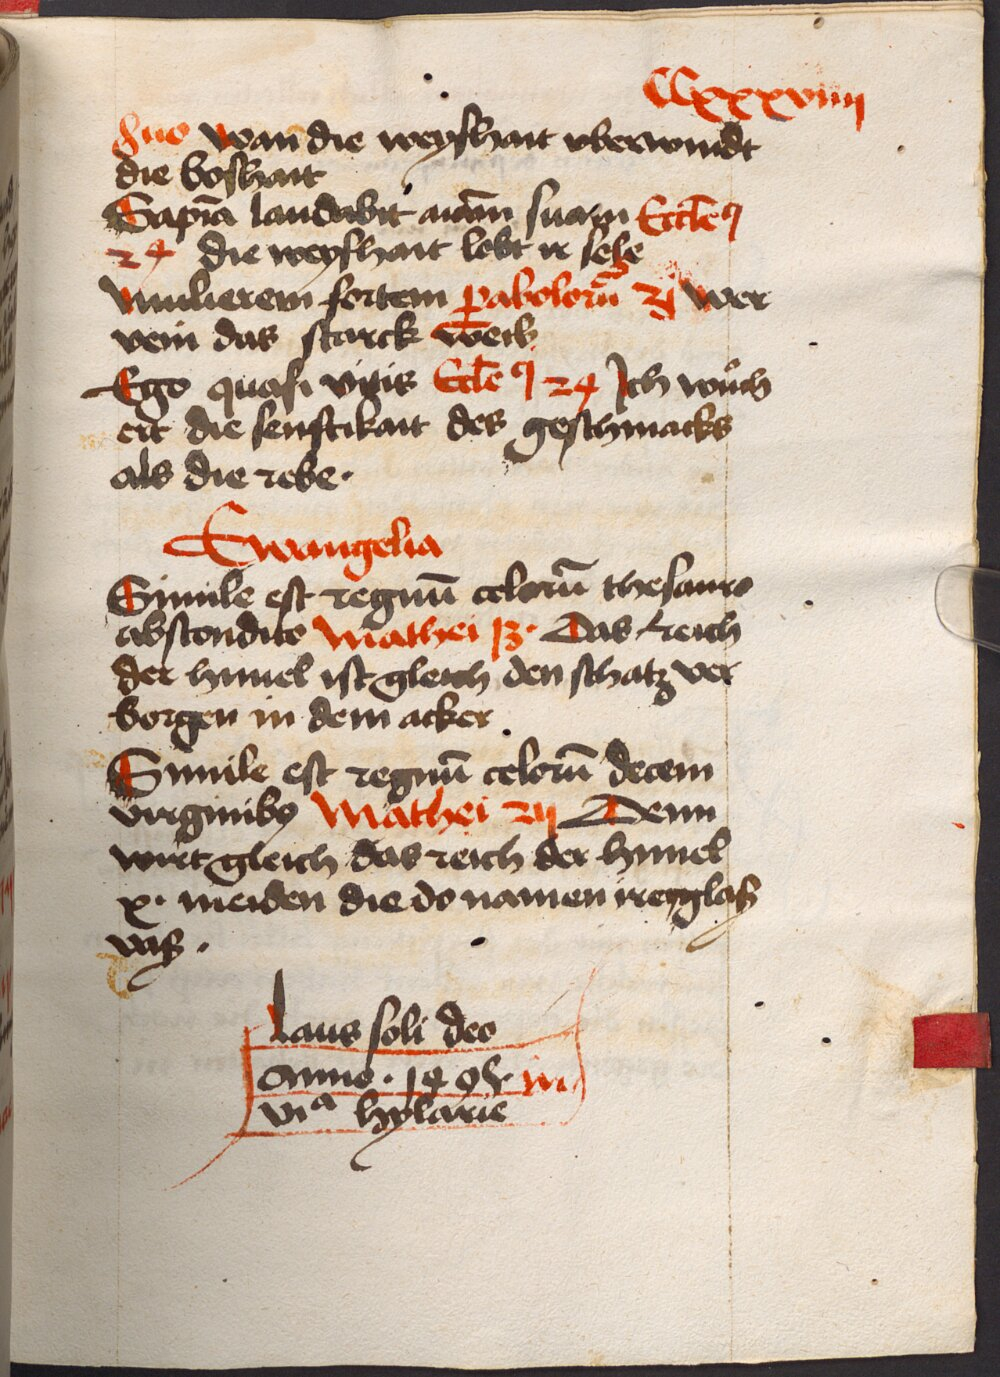 CCxxxviiij
suo wan die weyshait vberwindt
die boshait
Sapīa laudabit aīam suam Eccleꝰ
24 die weyshait lobt ir sele
Mulierem fortem ꝑabolorū Wer
vein das starck weib
Ego quasi vitis Eccleꝰ 24 Jch wůch
ert die senftikait des geschmacks
als die rebe.
Ewangelia
Simile est regnū celorū thesauro
abscondito Mathei 13. Das reich
der himel ist gleich den schatz ver
borgen in dem acker
Simile est regnū celorū decem
virginibꝰ Mathei Denn
wirt gleich das reich der himel
x. meiden die do namen ire glaß
vaß.
Laus soli deo
Anno. in
viᵃ hylarie